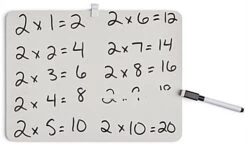 2 x 1 = 2
2 x 2 = 4
2 x 3 = 6
2 x 4 = 8
2 x 5 = 10
2 x 6 = 12
2 x 7 = 14
2 x 8 = 16
2 x 10 = 20